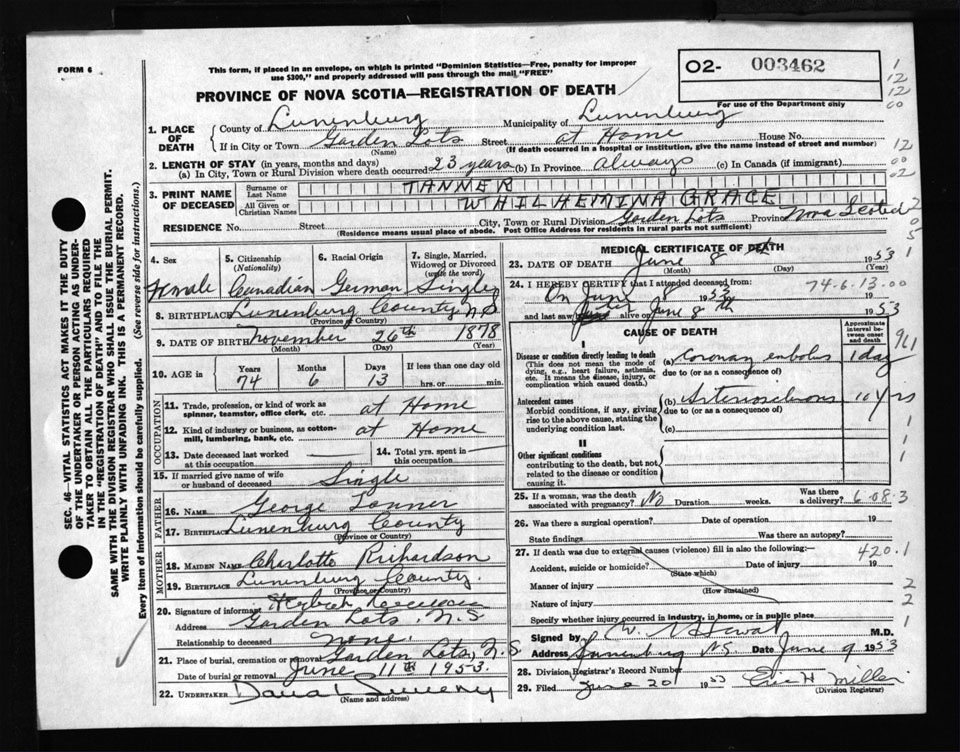 FORM 6
This form, if placed in an envelope, on which is printed "Dominion Statistics—Free, penalty for improper
use $300," and properly addressed will pass through the mail "FREE"
O2- 003462
For use of the Department only
PROVINCE OF NOVA SCOTIA—REGISTRATION OF DEATH
1. PLACE OF DEATH
County of Lunenburg Municipality of Lunenburg
If in City or Town Garden Lots Street at Home House No.
(Name) (If death occurred in a hospital or institution, give the name instead of street and number)
2. LENGTH OF STAY (in years, months and days)
(a) In City, Town or Rural Division where death occurred 23 years (b) In Province always (c) In Canada (if immigrant)
3. PRINT NAME OF DECEASED
Surname or Last Name TANNER
All Given or Christian Names WHILHEMINA GRACE
RESIDENCE No. Street City, Town or Rural Division Garden Lots Province Nova Scotia
(Residence means usual place of abode. Post Office Address for residents in rural parts not sufficient)
4. Sex
Female
5. Citizenship (Nationality)
Canadian
6. Racial Origin
German
7. Single, Married, Widowed or Divorced (write the word)
Single
8. BIRTHPLACE Lunenburg County N.S
(Province or Country)
9. DATE OF BIRTH November 26th 1878
(Month) (Day) (Year)
10. AGE in Years 74 Months 6 Days 13
If less than one day old
hrs. or min.
OCCUPATION
11. Trade, profession, or kind of work as spinner, teamster, office clerk, etc. at Home
12. Kind of industry or business, as cotton-mill, lumbering, bank, etc. at Home
13. Date deceased last worked at this occupation
14. Total yrs. spent in this occupation
15. If married give name of wife or husband of deceased Single
FATHER
16. Name George Tanner
17. Birthplace Lunenburg County
(Province or Country)
MOTHER
18. Maiden Name Charlotte Richardson
19. Birthplace Lunenburg County.
(Province or Country)
20. Signature of informant
Address Garden Lots, N.S
Relationship to deceased None.
21. Place of burial, cremation or removal Garden Lots, N.S
Date of burial or removal June 11th 1953.
22. Undertaker
(Name and address)
MEDICAL CERTIFICATE OF DEATH
23. DATE OF DEATH June 8 1953
(Month) (Day) (Year)
24. I HEREBY CERTIFY that I attended deceased from: 74-6-13-00
On June 8 1953
and last saw alive on June 8th 1953
CAUSE OF DEATH
Approximate interval between onset and death
I
Disease or condition directly leading to death
(This does not mean the mode of dying, e.g., heart failure, asthenia, etc. It means the disease, injury, or complication which caused death.)
(a) Coronary embolus 1 day
due to (or as a consequence of)
Antecedent causes
Morbid conditions, if any, giving rise to the above cause, stating the underlying condition last.
(b) Arteriosclerosis 10 yrs
due to (or as a consequence of)
(c)
II
Other significant conditions
contributing to the death, but not related to the disease or condition causing it.
25. If a woman, was the death associated with pregnancy? No Duration weeks. Was there a delivery? 6-08-3
26. Was there a surgical operation? Date of operation 19
State findings Was there an autopsy?
27. If death was due to external causes (violence) fill in also the following:— 420.1
Accident, suicide or homicide? Date of injury 19
(State which)
Manner of injury
(How sustained)
Nature of injury
Specify whether injury occurred in industry, in home, or in public place
Signed by M.D.
Address Lunenburg NS Date June 9 1953
28. Division Registrar's Record Number
29. Filed June 20 1953 Miller
(Division Registrar)
SEC. 46—VITAL STATISTICS ACT MAKES IT THE DUTY
OF THE UNDERTAKER OR PERSON ACTING AS UNDER-
TAKER TO OBTAIN ALL THE PARTICULARS REQUIRED
IN THE "REGISTRATION OF DEATH" AND TO FILE THE
SAME WITH THE DIVISION REGISTRAR WHO SHALL ISSUE THE BURIAL PERMIT.
WRITE PLAINLY WITH UNFADING INK. THIS IS A PERMANENT RECORD.
Every item of information should be carefully supplied. (See reverse side for instructions.)